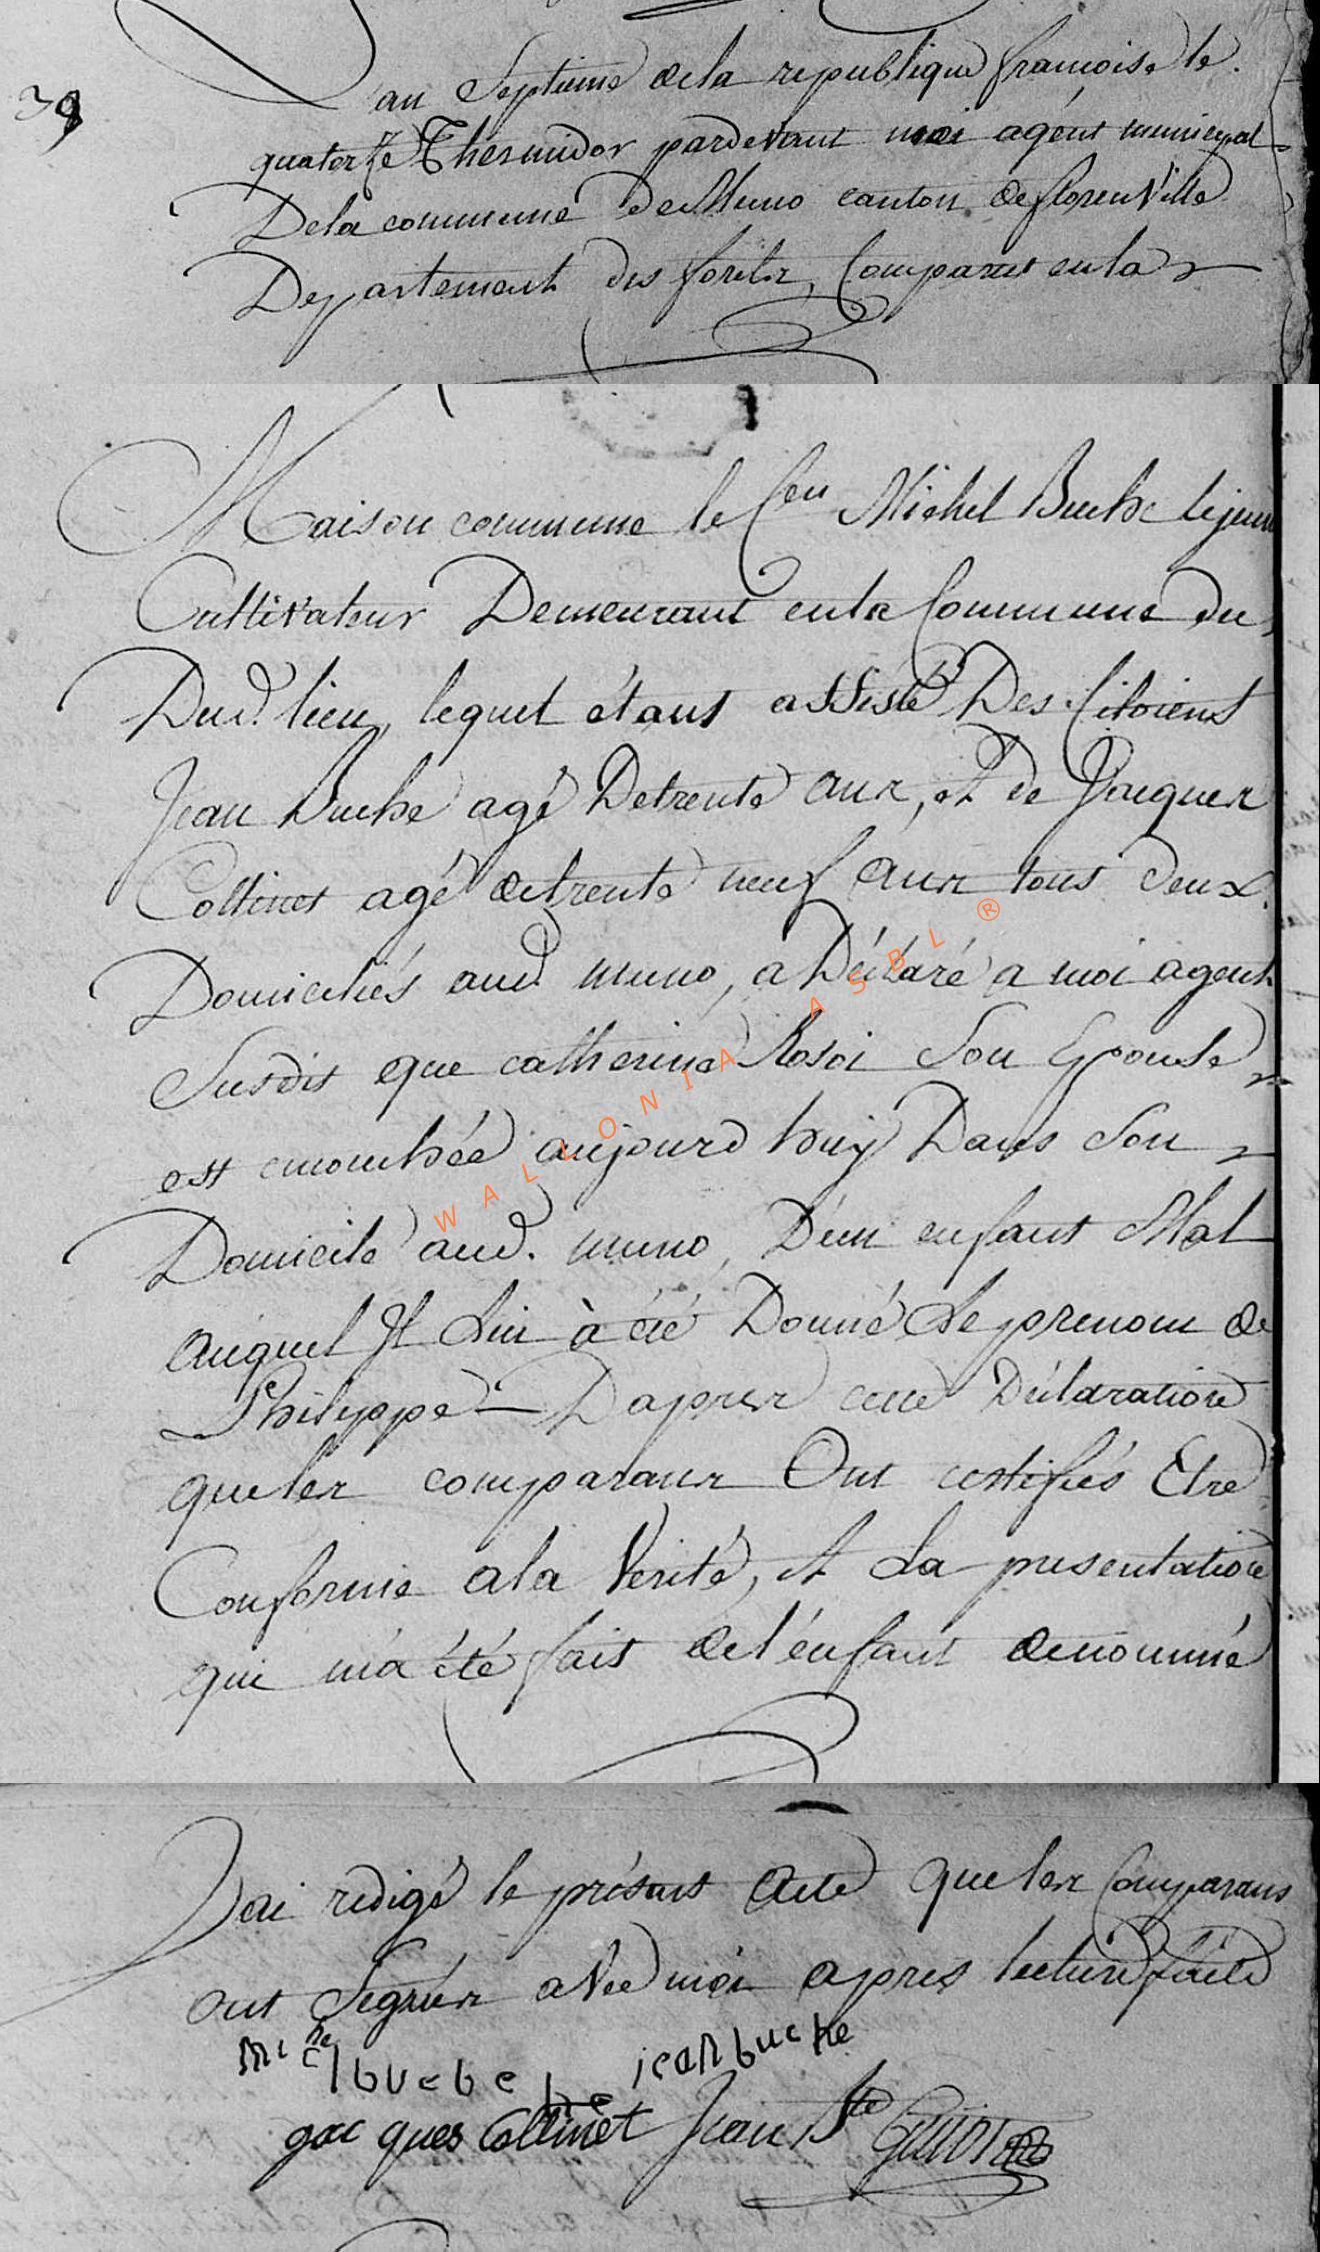 39
an Septieme dela republique francoise le
quatorze Thermidor pardevant moi agént municipal
Dela commune de Muno canton deflorenville
Departement des forêts, Comparut enla
Maison commune le Cen Michel Buche lejeune
Cultivateur Demeurant enla Commune du
Dud. lieu, lequel étant assisté Des Citoiens
Jean Buche agé Detrente ans, et de Jacques
Collinet agé detrente neuf ans tous deux
Domiciliés aud. muno, a Déclaré a moi agent
Susdit que catherine Rosoi Son Epouse
est acouchée aujourd huy Dans Son
Domicile aud. muno, D'un enfant Mal
auquel Il Lui à été Donné Le prenom de
Philippe D'apres cette Déclaration
queles comparans Ont certifiés Etre
Conforme ala Verité, et La presentation
qui m'a été fait del'énfant denommé
J'ai redigé le présent acte queles Comparans
ont Signés avec moi apres lecture faite
michel buche jean buche
gac ques Collinet Jean Bte
WALLONIA ASBL ®